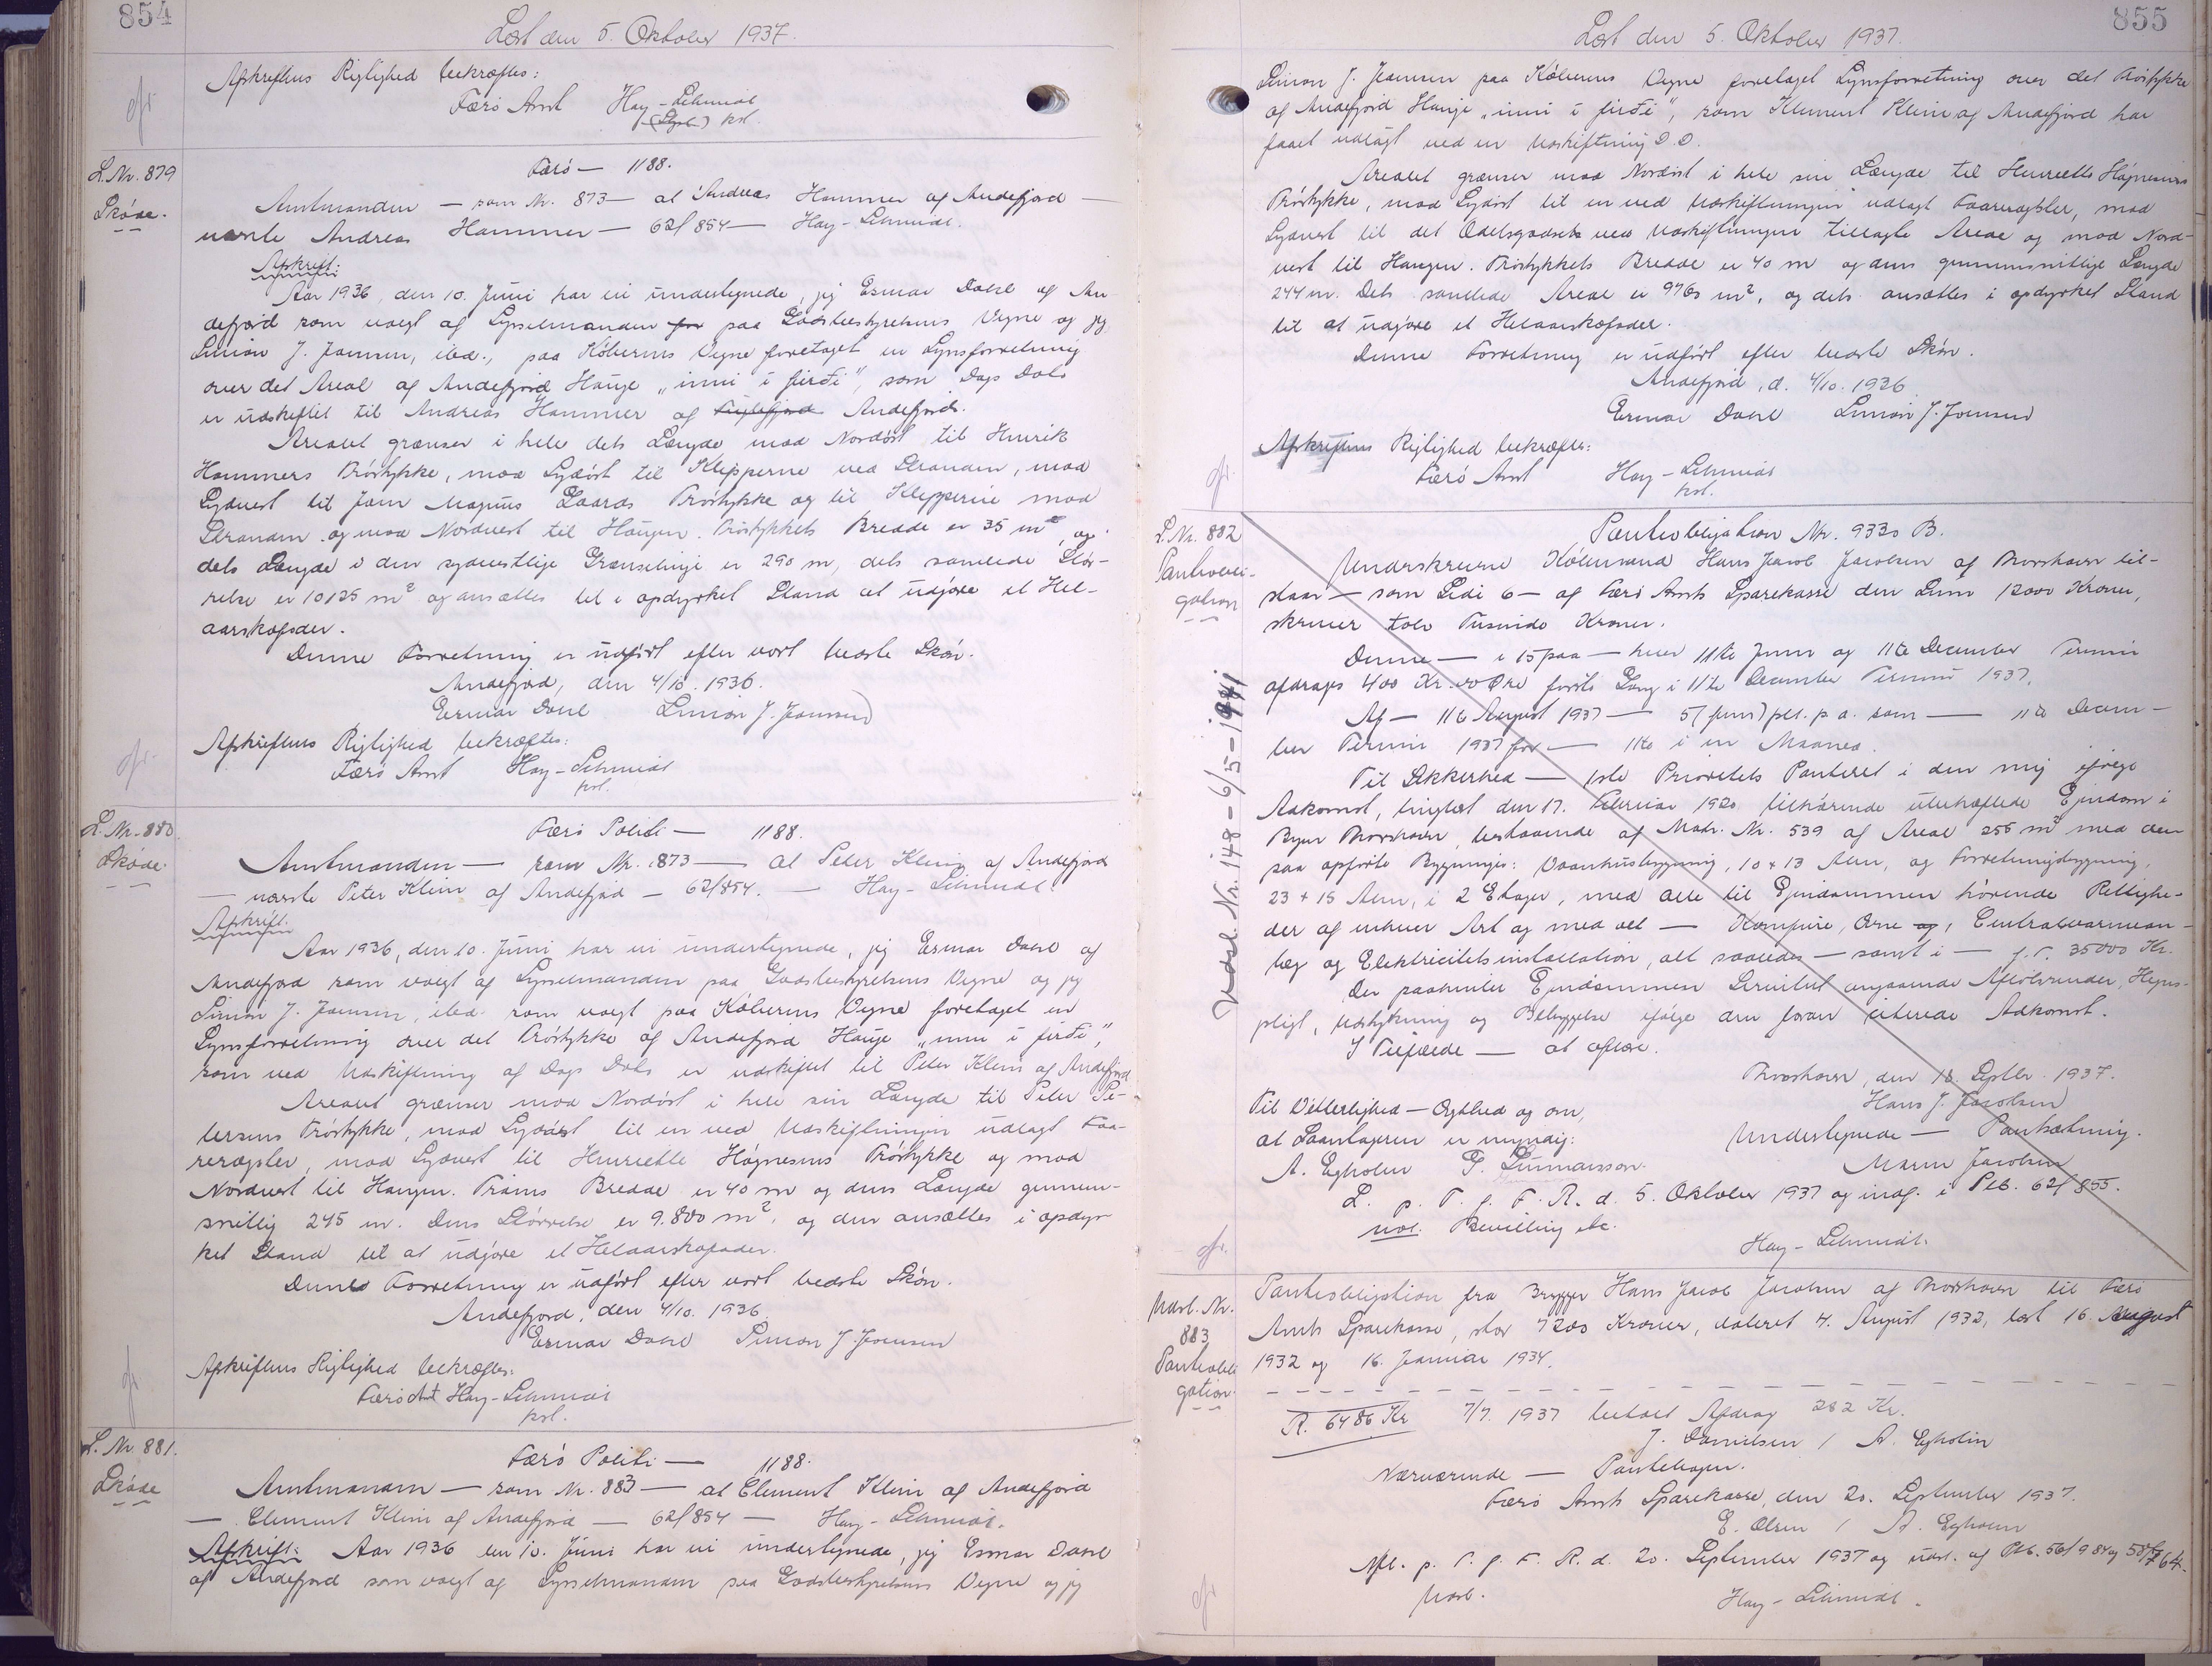 854
Læst den 5. Oktober 1937.
Afskriftens Rigtighed bekræftes:
Færø Amt Hay-Schmidt
kst.
L. Nr. 879
Skøde.
Færø — 1188.
Amtmanden — som Nr. 873 — at Andreas Hammer af Andefjord —
nævnte Andreas Hammer — 62/854 — Hay-Schmidt.
Afskrift:
Aar 1936, den 10. Juni har vi undertegnede, jeg Esmar Dahl af An
defjord som valgt af Sysselmanden for paa Godsbestyrelsens Vegne og jeg
Simon J. Joensen, ibd., paa Køberens Vegne foretaget en Synsforretning
over det Areal af Andefjord Hauge "inni i firði", som Dags Dato
er udskiftet til Andreas Hammer af Andefjord.
Arealet grænser i hele dets Længde mod Nordøst til Henrik
Hammers Trøstykke, mod Sydøst til Klipperne ved Stranden, mod
Sydvest til Joen Magnus Zaards Trøstykke og til Klipperne mod
Stranden og mod Nordvest til Haugen. Trøstykkets Bredde er 35 m, og
dets Længde i den sydvestlige Grænselinje er 290 m, dets samlede Stør-
relse er 10125 m² og ansættes til i opdyrket Stand at udgøre et Hel-
aarskofoder.
Denne Forretning er udført efter vort bedste Skøn.
Andefjord, den 4/10. 1936.
Esmar Dahl Simon J. Joensen
Afskriftens Rigtighed bekræftes:
Færø Amt Hay-Schmidt
kst.
L. Nr. 880
Skøde.
Færø Politi — 1188.
Amtmanden — som Nr. 873 — at Peter Klein af Andefjord
— nævnte Peter Klein af Andefjord — 62/854. — Hay-Schmidt.
Afskrift.
Aar 1936, den 10. Juni har vi undertegnede, jeg Esmar Dahl af
Andefjord som valgt af Sysselmanden paa Godsbestyrelsens Vegne og jeg
Simon J. Joensen, ibd. som valgt paa Køberens Vegne foretaget en
Synsforretning over det Trøstykke af Andefjord Hauge "inni i firði",
som ved Udskiftning af Dags Dato er udskiftet til Peter Klein af Andefjord
Arealet grænser mod Nordøst i hele sin Længde til Peter Pe-
tersens Trøstykke, mod Sydøst til en ved Udskiftningen udlagt Faa-
rerægster, mod Sydvest til Henriette Høgnesens Trøstykke og mod
Nordvest til Haugen. Trøens Bredde er 40 m og dens Længde gennem-
snitlig 245 m. Dens Størrelse er 9.800 m², og den ansættes i opdyr
ket Stand til at udgøre et Helaarskofoder.
Denne Forretning er udført efter vort bedste Skøn.
Andefjord, den 4/10. 1936.
Esmar Dahl Simon J. Joensen
Afskriftens Rigtighed bekræftes:
Færø Amt Hay-Schmidt
kst.
L. Nr. 881.
Skøde
Færø Politi — 1188.
Amtmanden — som Nr. 883 — at Clement Klein af Andefjord
— Clement Klein af Andefjord — 62/854 — Hay-Schmidt.
Afskrift: Aar 1936 den 10. Juni har vi undertegnede, jeg Esmar Dahl
af Andefjord som valgt af Sysselmanden paa Godsbestyrelsens Vegne og jeg
855
Læst den 5. Oktober 1937.
Simon J. Joensen paa Køberens Vegne foretaget Synsforretning over det Trøstykke
af Andefjord Hauge "inni i firði", som Klement Klein af Andefjord har
faaet udlagt ved en Udskiftning D.D.
Arealet grænser mod Nordøst i hele sin Længde til Henriette Høgnesens
Trøstykke, mod Sydøst til en ved Udskiftningen udlagt Faarerægster, mod
Sydvest til det Odelsgodset ved Udskiftningen tillagte Areal og mod Nord-
vest til Haugen. Trøstykkets Bredde er 40 m og dens gennemsnitlige Længde
244 m. Dets samlede Areal er 9760 m², og dets ansættes i opdyrket Stand
til at udgøre et Helaarskofoder.
Denne Forretning er udført efter bedste Skøn.
Andefjord, d. 4/10. 1936
Esmar Dahl Simon J. Joensen
Afskriftens Rigtighed bekræftes:
Færø Amt Hay-Schmidt
kst.
L. Nr. 882
Pantobli-
gation
Udsl. Nr. 148 - 6/5-1941
Pantobligation Nr. 9330 B.
Underskrevne Købmand Hans Jacob Jacobsen af Thorshavn til-
staar — som Sidi 6 — af Færø Amts Sparekasse den Sum 12000 Kroner,
skriver tolv Tusinde Kroner.
Denne — i 15 paa — hver 11te Juni og 11te December Termin
afdrages 400 Kr. 00 Øre første Gang i 11te December Termin 1937.
Af — 11te August 1937 — 5 (fem) pCt. p. a. som — 11te Decem-
ber Termin 1937 for — 11te i en Maaned.
Til Sikkerhed — 1ste Prioritets Panteret i den mig ifølge
Adkomst, tinglæst den 17. Februar 1920 tilhørende ubehæftede Ejendom i
Byen Thorshavn, bestaaende af Matr. Nr. 539 af Areal 256 m² med den
saa opførte Bygninger: Vaanhusbygning, 10 x 13 Alen, og Forretningsbygning,
23 + 15 Alen, i 2 Etager, med alle til Ejendommen hørende Rettighe-
der af enhver Art og med alt — Komfure, Ovne og, Centralvarmean-
læg og Elektricitetsinstallation, alt saaledes — samt i — f. T. 35000 Kr.
Der paahviler Ejendommen Servitut angaaende Afløbsrender, Hegns-
pligt, Udstykning og Bebyggelse ifølge den foran citerede Adkomst.
I Tilfælde — at opløse.
Thorshavn, den 18. Septbr. 1937.
Hans J. Jacobsen
Til Vitterlighed — Ægthed og om,
at Laantageren er myndig:
Undertegnede — Pantsætning.
A. Egholm
Maren Jacobsen
L. p. T. f. F. R. d. 5. Oktober 1937 og indf. i Ptb. 62/855.
Bevilling etc.
Hay-Schmidt.
Udsl. Nr.
883
Pantobli
gation.
Pantobligation fra Brygger Hans Jacob Jacobsen af Thorshavn til Færø
Amts Sparekasse, stor 7200 Kroner, dateret 4. August 1932, læst 16. August
1932 og 16. Januar 1934.
R. 6486 Kr 7/7. 1937 betalt Afdrag 282 Kr.
J. Danielsen / A. Egholm
Nærværende — Pantebogen.
Færø Amts Sparekasse, den 20. September 1937.
E. Olsen / A. Egholm
Afl. p. T. f. F. R. d. 20. September 1937 og udsl. af Ptb. 56/984 og 58/764.
Udsl.
Hay-Schmidt.